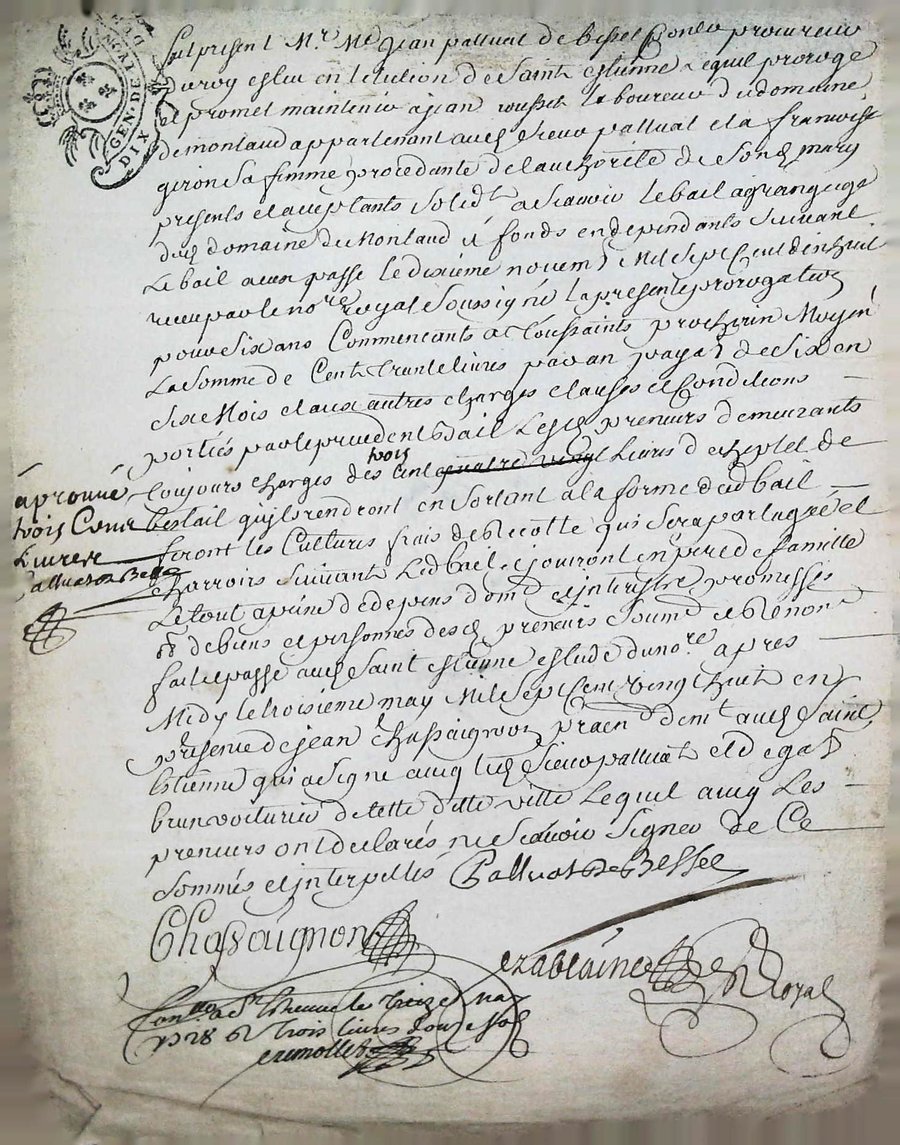 GEN. DE LYON
DIX
fut present Mr. Me jean palluat de besset Coner procureur
du roy eslu en lelection de Saint estienne Lequel proroge
et promet maintenir a jean rousset laboureur du domaine
de montaud appartenant aud sieur palluat et a francoise
giron Sa femme procedante de lauthorite de Sond mary
presents et acceptants Solidt ascavoir Le bail a grangeage
dud domaine du Montaud & fonds en dependants Suivant
Le bail a eux passe le dixieme novem) Mil Sept Cent dix huit
receu par le nore royal Soussigné La presente prorogation
pour Six ans Commencants a la toussaints prochain Moyent
La Somme de Cent trante livres par an payab de Six en
Six Mois et aux autres charges clauses et Conditions
portés par le precedent bail Lesd preneurs demeurants
toujours chargés des trois Cent quatre vingt Livres de cheptel de
bestail quils rendront en Sortant a la forme dud bail
feront les Cultures frais de Recolte qui Sera partagée et
charrois Suivant Led bail & jouiront en pere de famille
Le tout a peine de depens domd et interests promesses
de biens et personnes desd preneurs Soumd et Renond
fait et passé aud Saint estienne estude du nore apres
Midy le troisieme may Mil Sept Cent vingt huit en
presence de jean Chassaignon praend demt aud Saint
Etienne qui a Signe avec led Sieur palluat et de
brun voiturier de cette ditte ville Lequel avec Les
preneurs ont declarés ne Scavoir Signer de Ce
Sommés et interpellés Palluat de Besset
aprouué
trois Cent
Liures
Palluat de Besset
Chassaignon
Royal
Conlle a St Etienne le treize may
1728 R trois livres douze sols